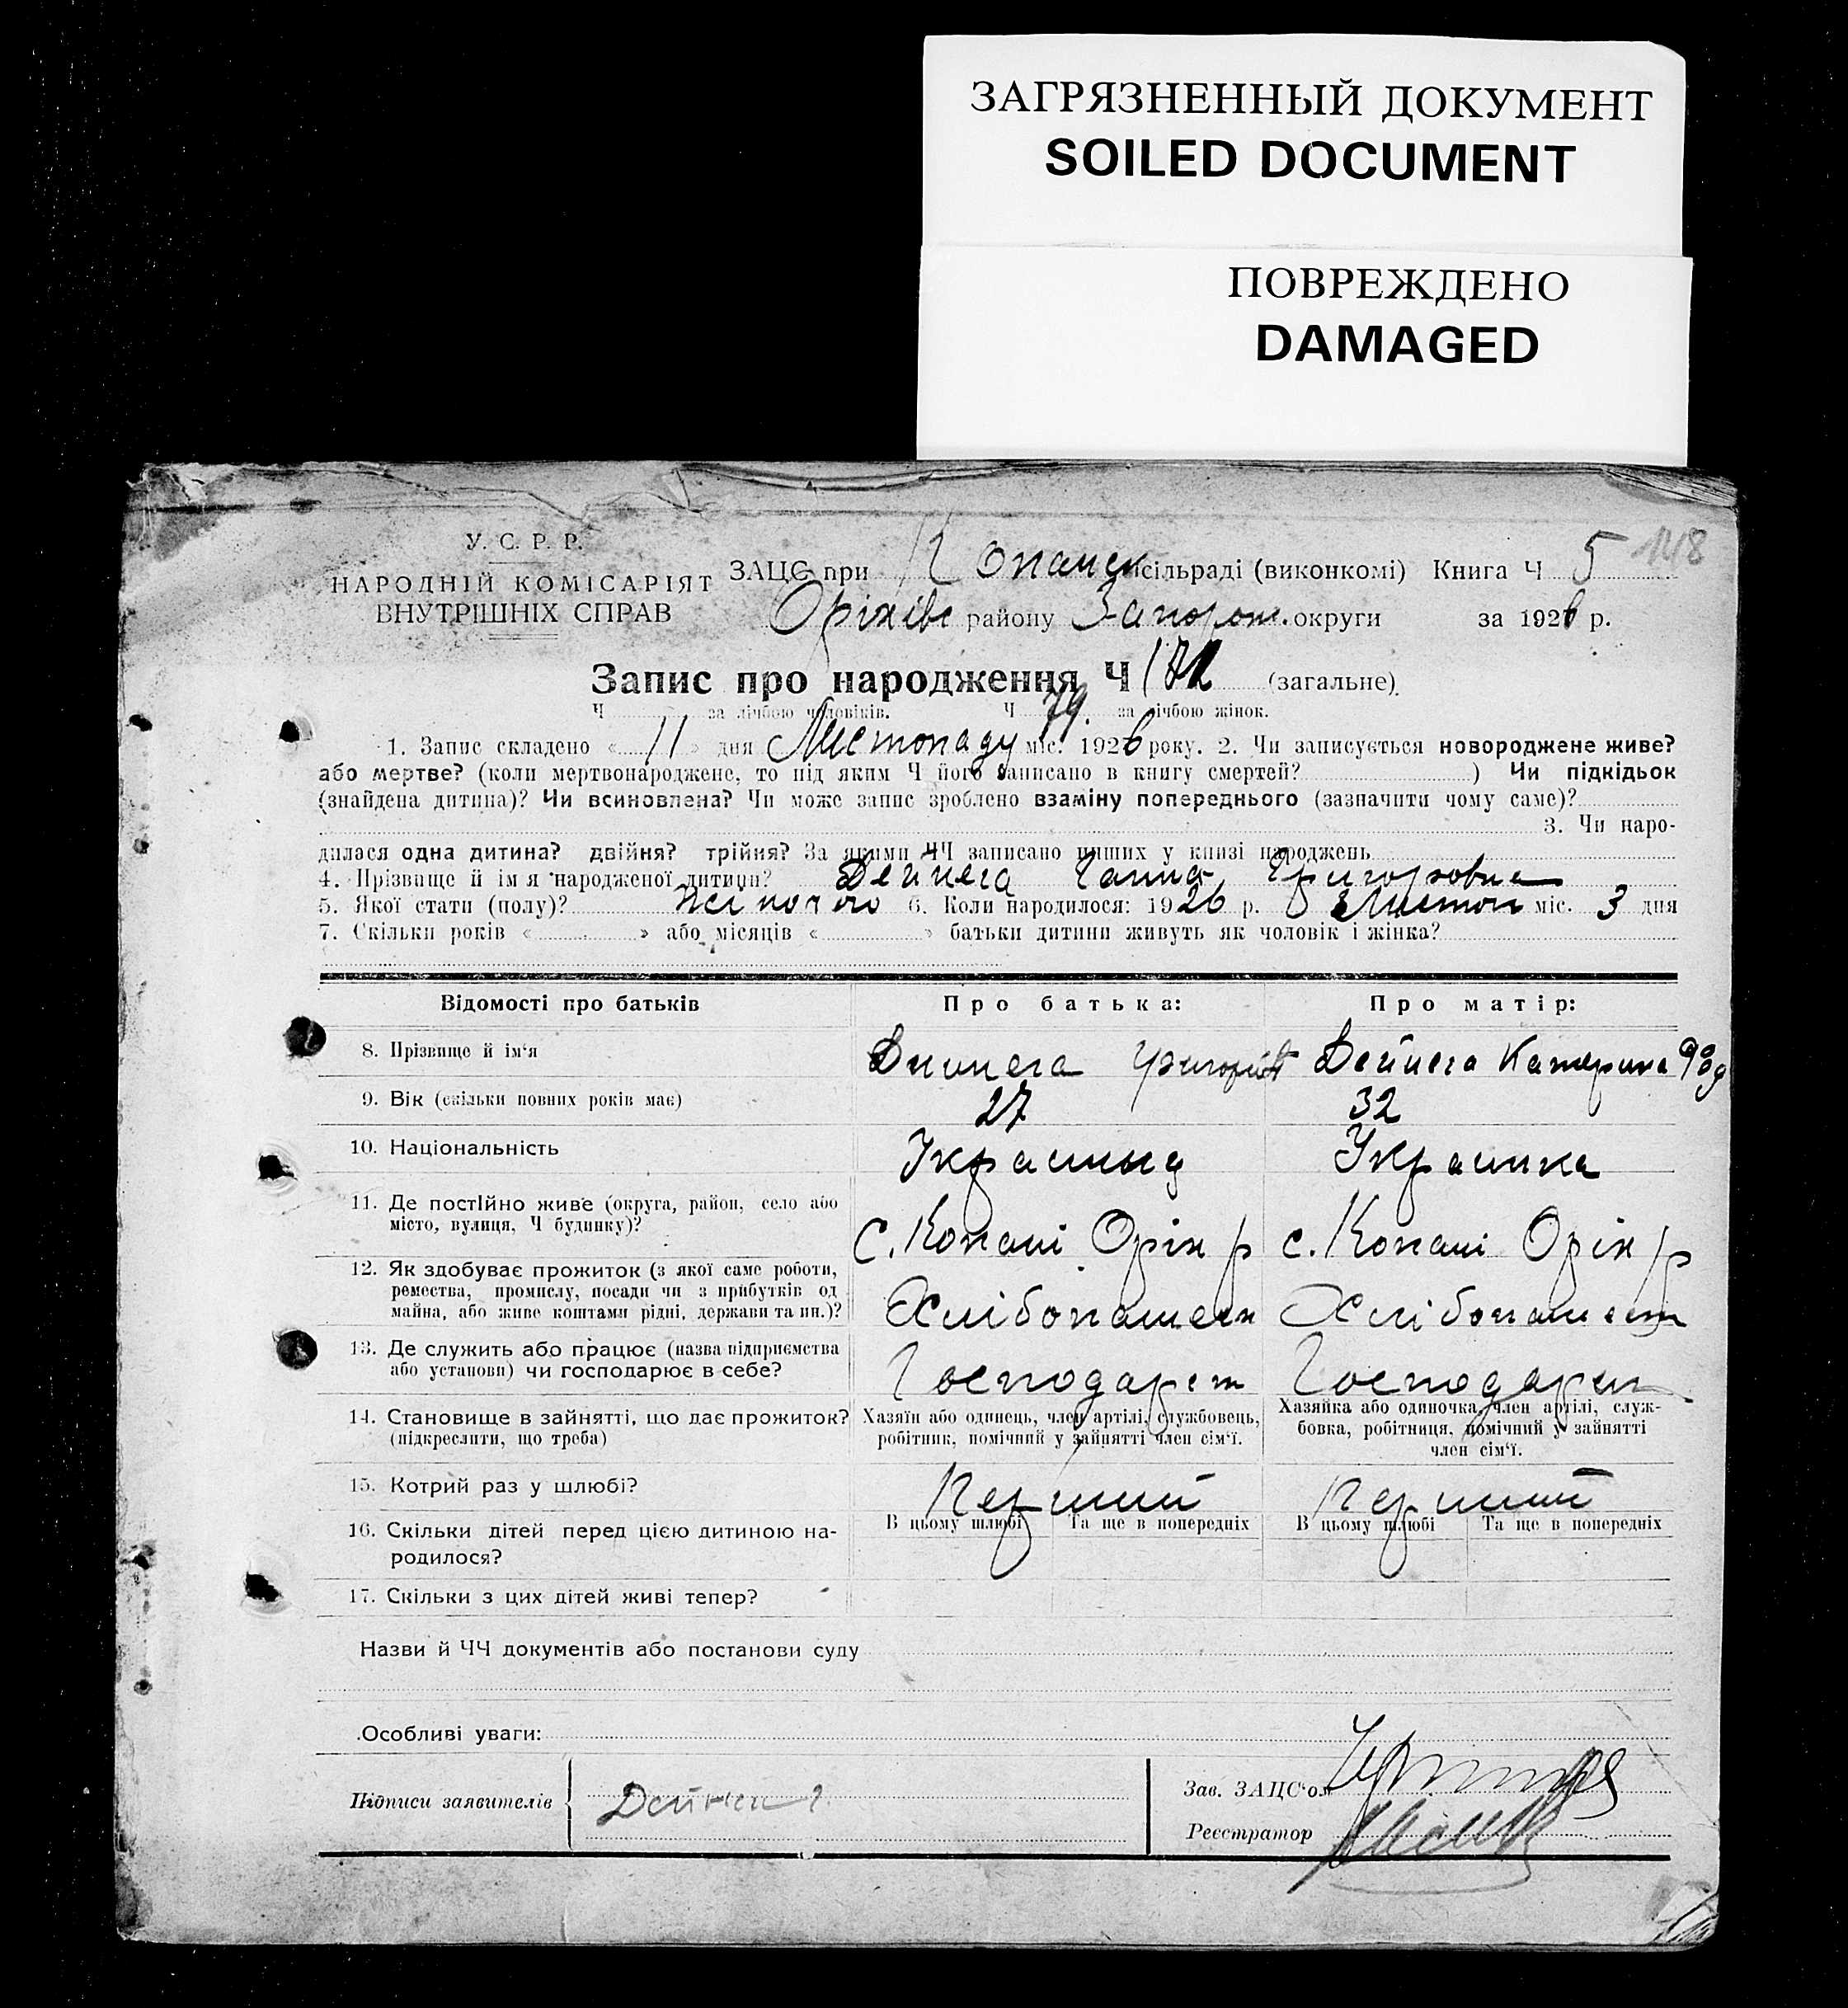 ЗАГРЯЗНЕННЫЙ ДОКУМЕНТ
SOILED DOCUMENT
ПОВРЕЖДЕНО
DAMAGED
148
У. С. Р. Р.
НАРОДНІЙ КОМІСАРІЯТ
ВНУТРІШНІХ СПРАВ
ЗАЦС при Копанск сільраді (виконкомі) Книга Ч 5
Оріхівс району Запорож. округи за 1926 р.
Запис про народження Ч (загальне).
Ч за лічбою чоловіків. Ч 79. за лічбою жінок.
1. Запис складено « 11 » дня Листопаду міс. 1926 року. 2. Чи записується новороджене живе?
або мертве? (коли мертвонароджене, то під яким Ч його записано в книгу смертей? ) Чи підкідьок
(знайдена дитина)? Чи всиновлена? Чи може запис зроблено взаміну попереднього (зазначити чому саме)?
3. Чи наро-
дилася одна дитина? двійня? трійня? За якими ЧЧ записано инших у книзі народжень
4. Прізвище й ім'я народженої дитини? Дейнега Ганна Григоровна
5. Якої стати (полу)? Жіночого 6. Коли народилося: 1926 р. Листоп міс. 3 дня
7. Скільки років « » або місяців « » батьки дитини живуть як чоловік і жінка?
Відомості про батьків Про батька: Про матір:
8. Прізвище й ім'я Дейнега Григорій Дейнега Катерина
9. Вік (скільки повних років має) 27 32
10. Національність Українец Українка
11. Де постійно живе (округа, район, село або
місто, вулиця, Ч будинку)?
с. Копані Оріх р с. Копані Оріх р
12. Як здобуває прожиток (з якої саме роботи,
ремества, промислу, посади чи з прибутків од
майна, або живе коштами рідні, держави та ин.)?
Хлібопашест Хлібопашест
13. Де служить або працює (назва підприємства
або установи) чи господарює в себе?
Господарст Господарст
14. Становище в зайнятті, що дає прожиток?
(підкреслити, що треба)
Хазяїн або одинець, член артілі, службовець,
робітник, помічний у зайнятті член сім'ї.
Хазяйка або одиночка, член артілі, служ-
бовка, робітниця, помічний у зайнятті
член сім'ї.
15. Котрий раз у шлюбі? Перший Перший
16. Скільки дітей перед цією дитиною на-
родилося?
В цьому шлюбі Та ще в попередніх В цьому шлюбі Та ще в попередніх
17. Скільки з цих дітей живі тепер?
Назви й ЧЧ документів або постанови суду
Особливі уваги:
Підписи заявителів Дейнега
Зав. ЗАЦС'ом
Реєстратор